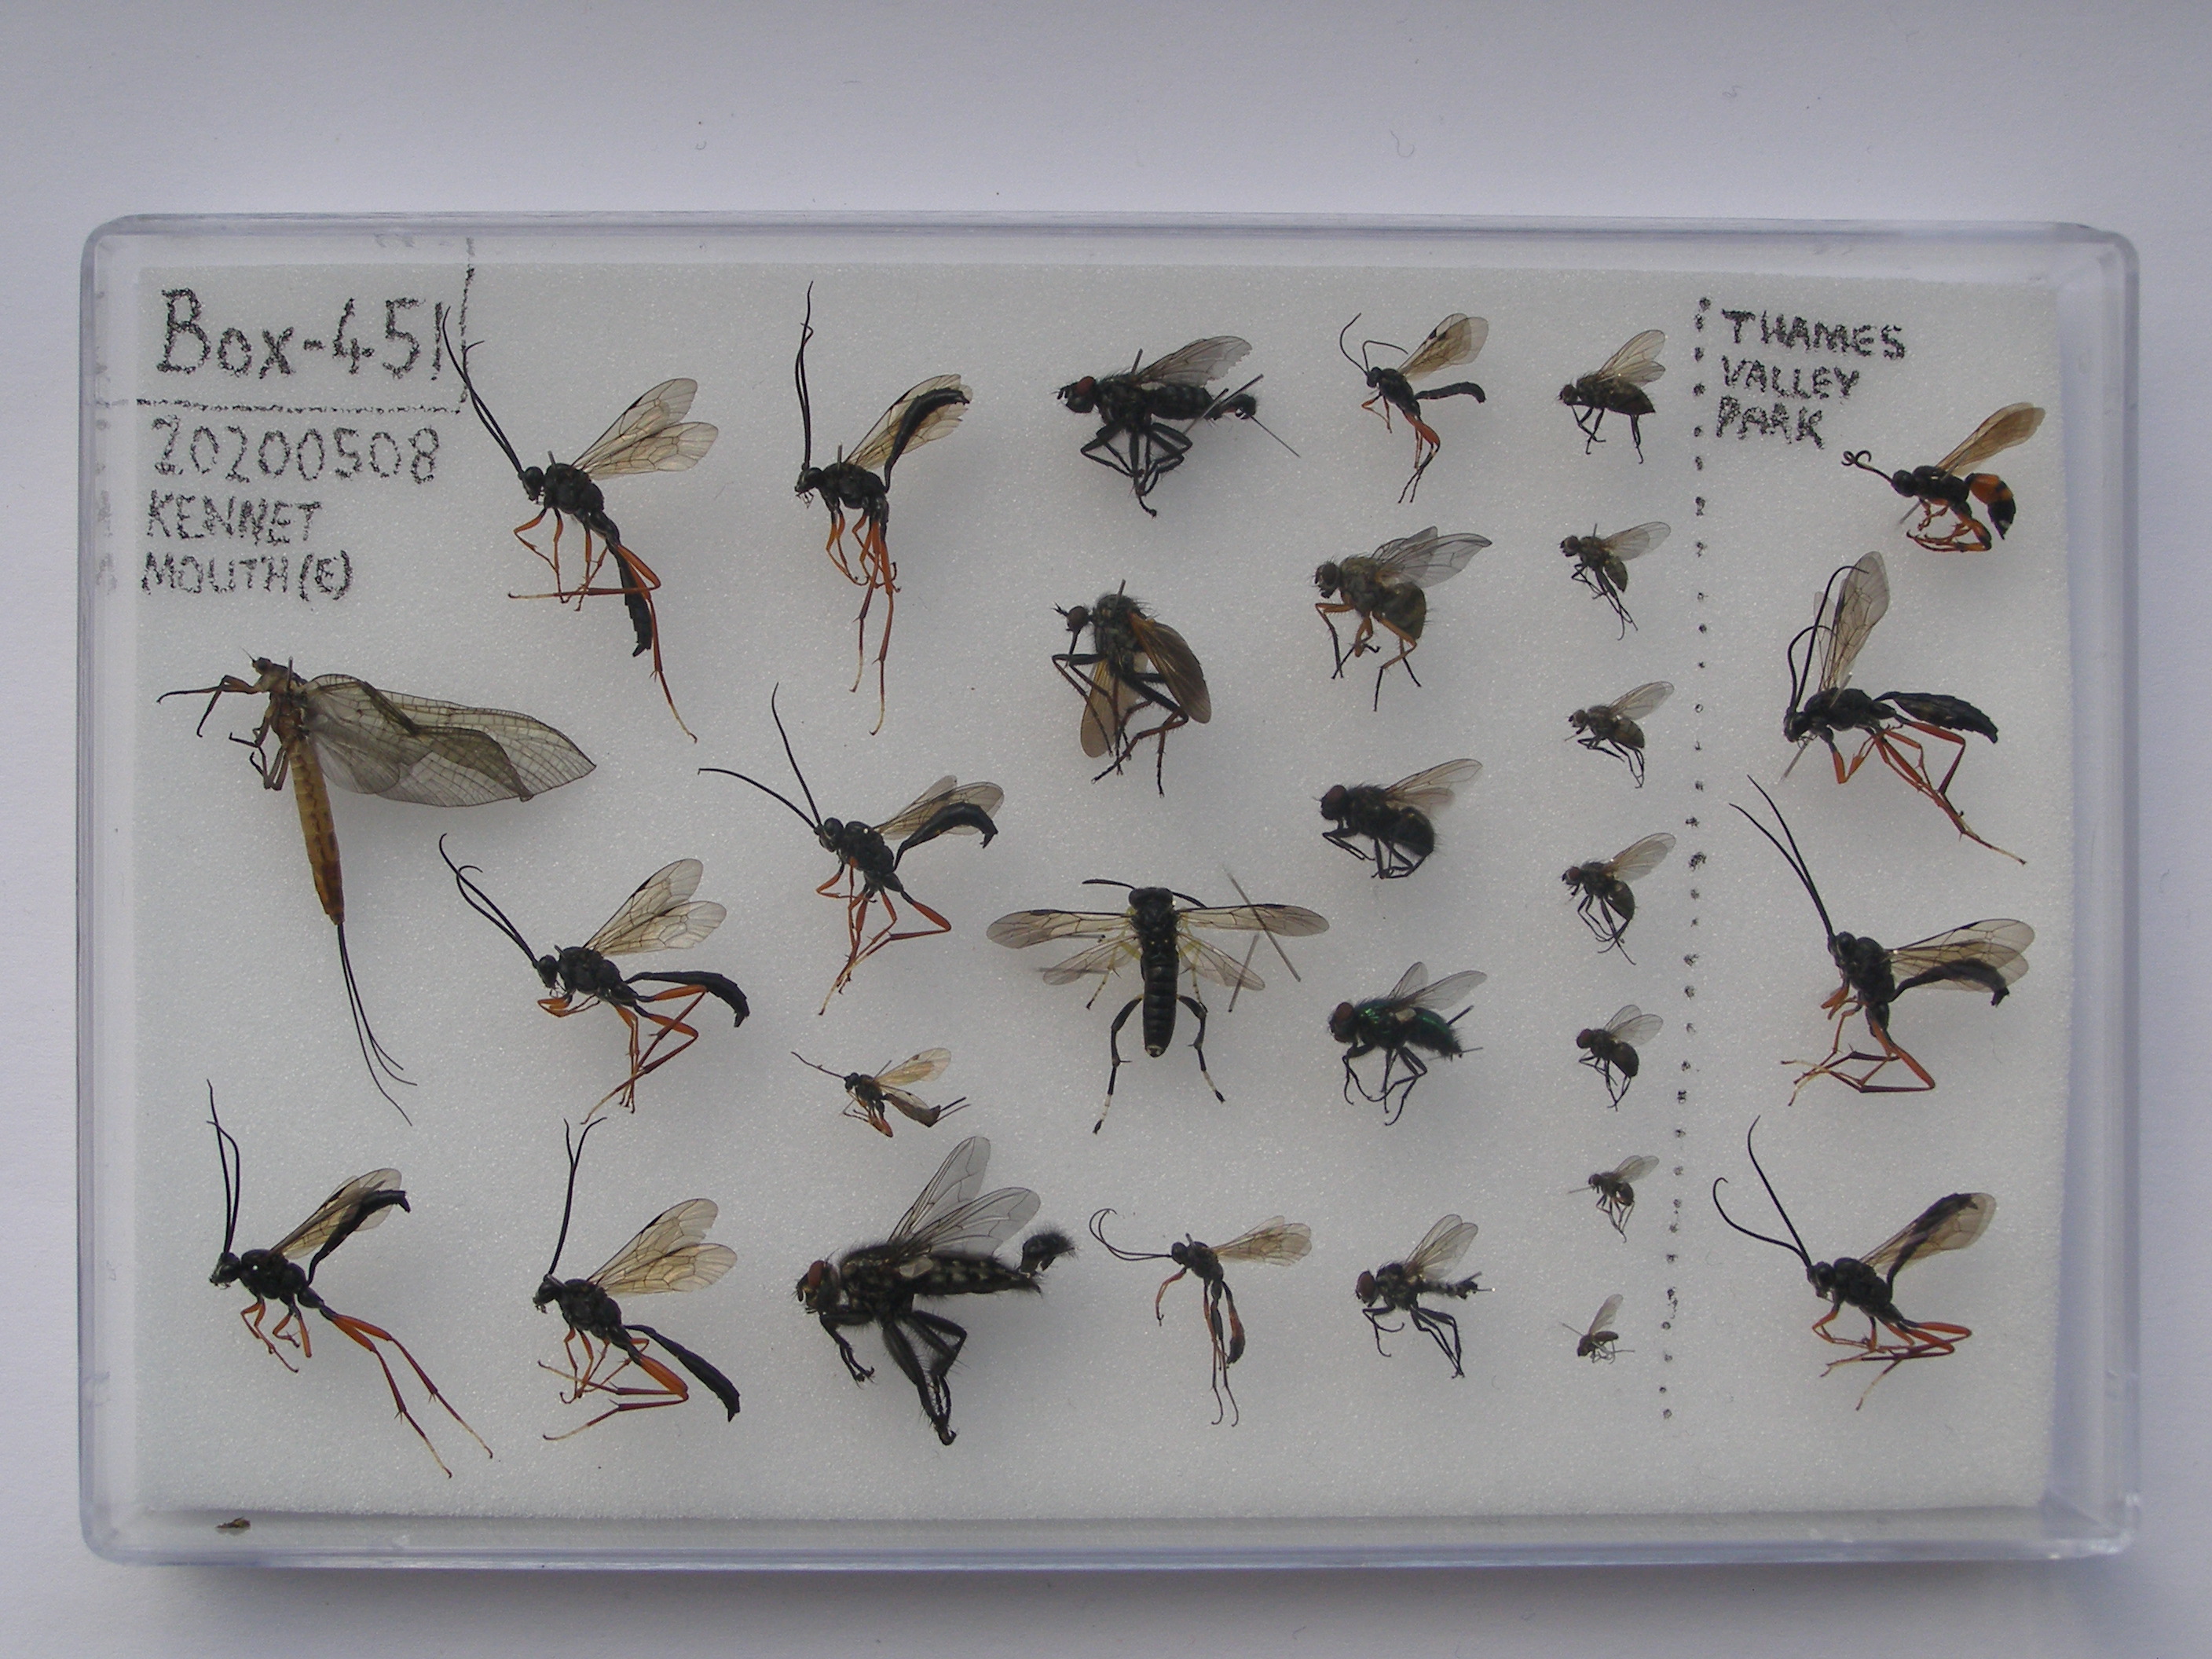 Box-451
20200508
KENNET
MOUTH(E)
THAMES
VALLEY
PARK